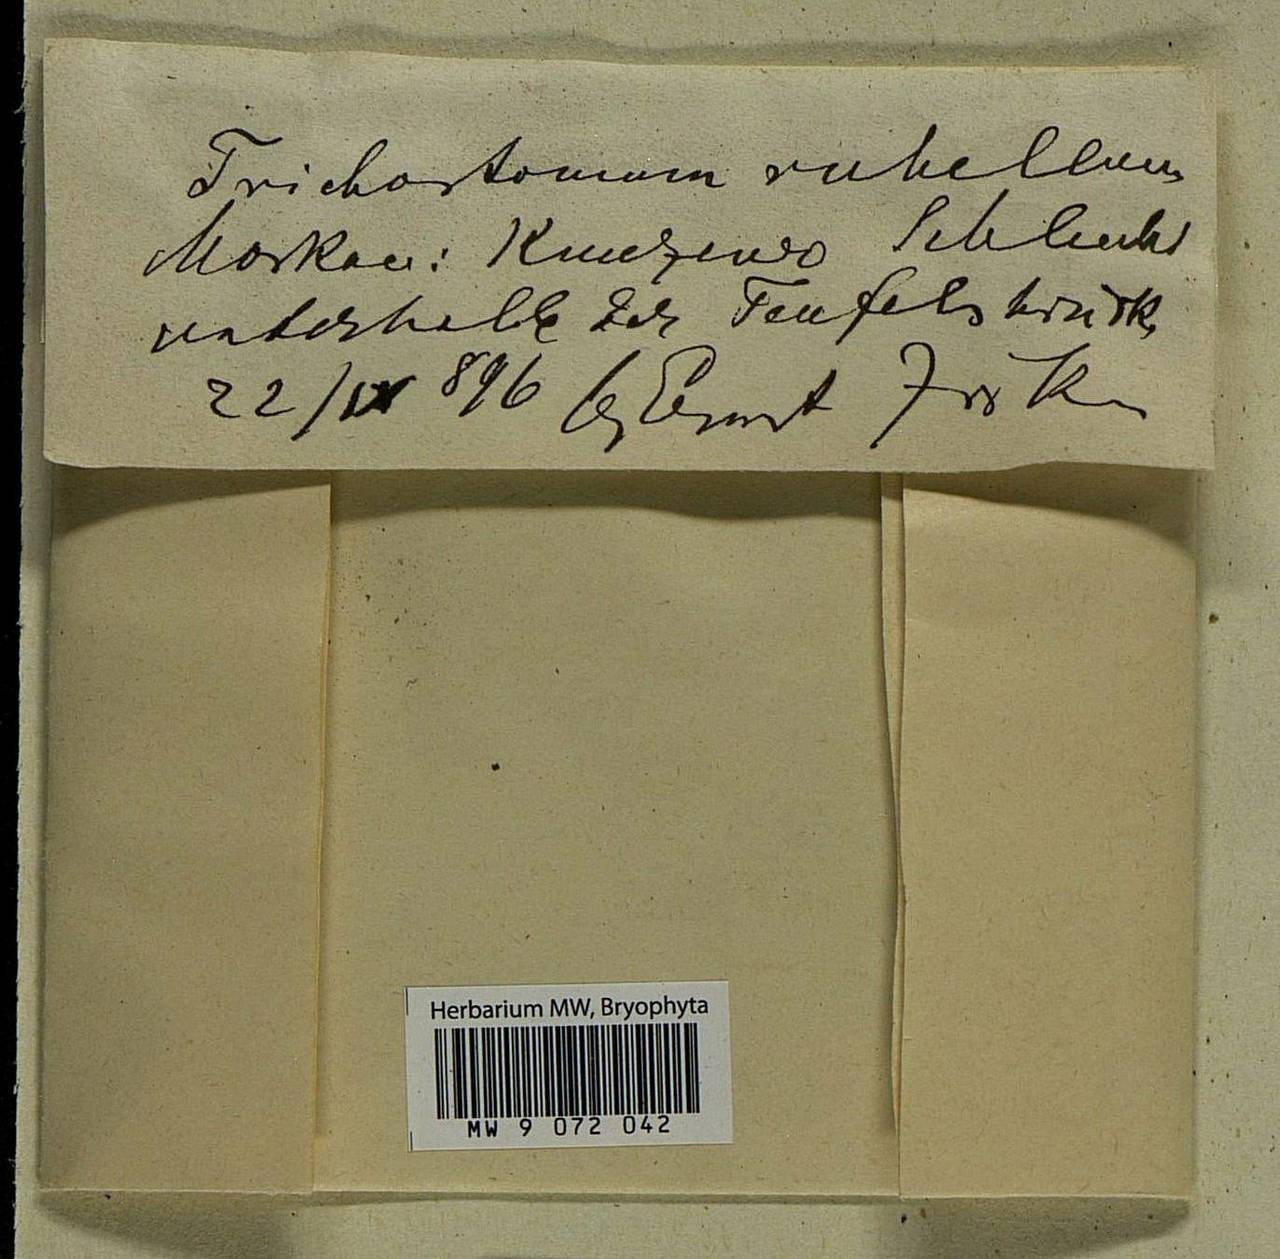 Trichostomum rubellum
Moskau: Kunzewo Schlucht
unterhalb der Teufelsbrück
22/IX 896 Ernst
Herbarium MW, Bryophyta
MW 9 072 042